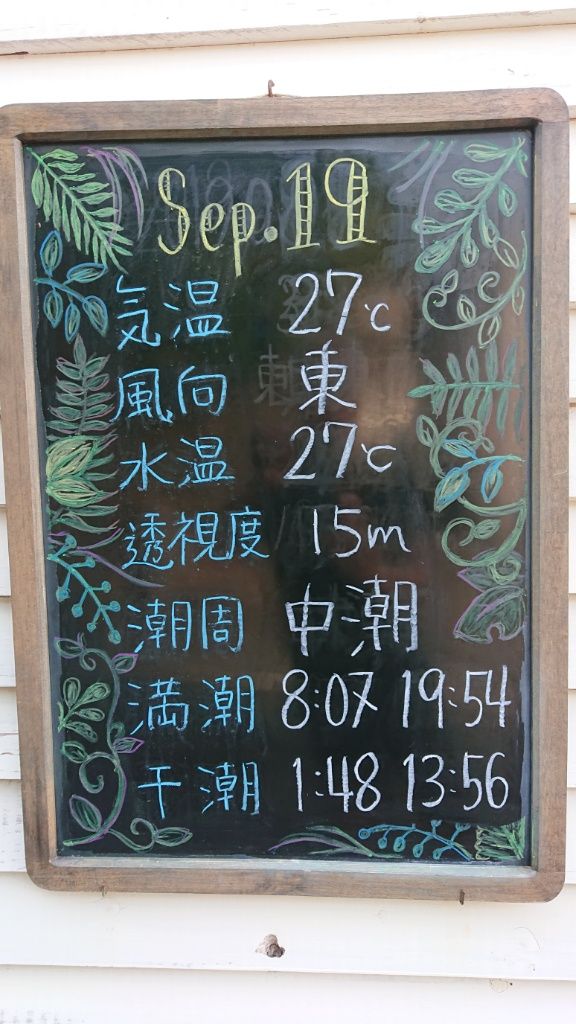 Sep. 19
気温 27℃
風向 東
水温 27℃
透視度 15m
潮周 中潮
満潮 8:07 19:54
干潮 1:48 13:56